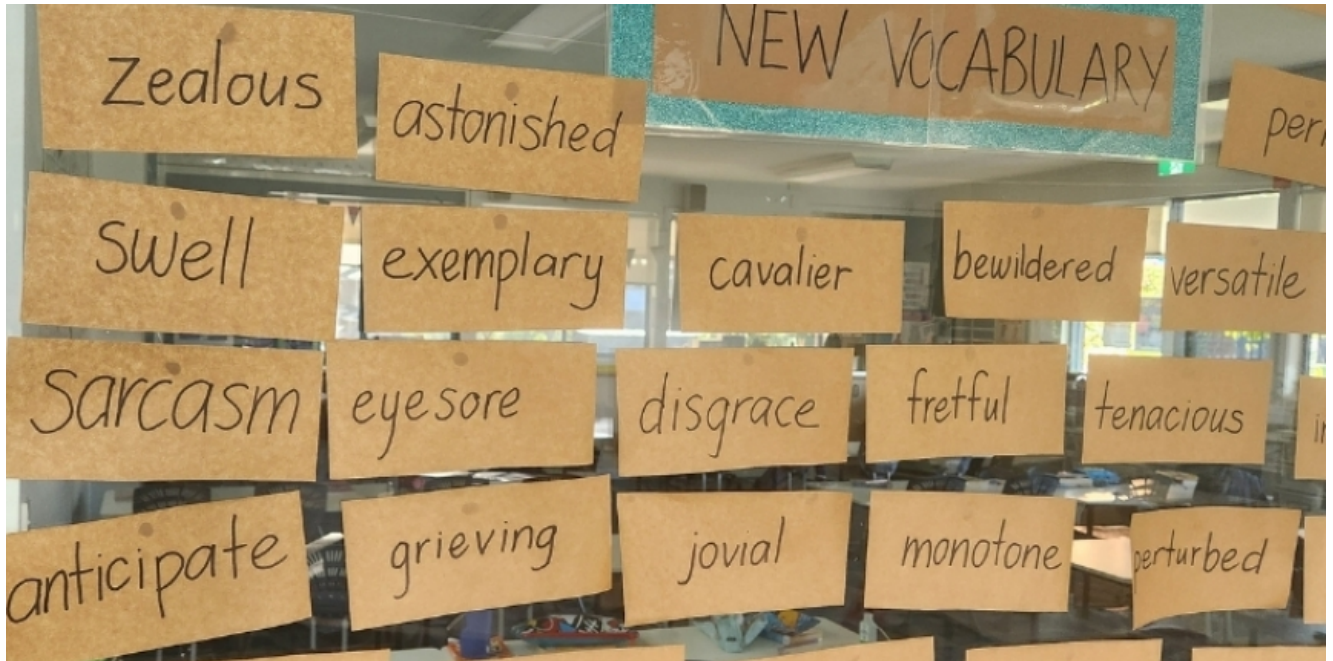 NEW VOCABULARY
zealous
astonished
swell
exemplary
cavalier
bewildered
versatile
sarcasm
eyesore
disgrace
fretful
tenacious
anticipate
grieving
jovial
monotone
perturbed